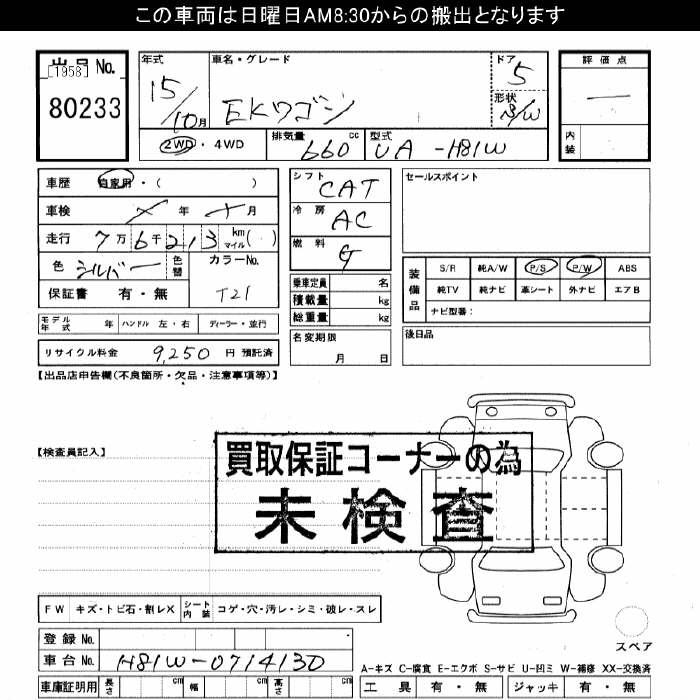 この車両は日曜日AM8:30からの搬出となります
出品No.
[1958]
80233
年式
15/10月
車名・グレード
EKワゴン
ドア
5
形状
S/W
評価点
―
内装
2WD・4WD
排気量
660 cc
型式
UA-H81W
車歴 自家用・( )
車検 年 月
走行 7万6千213 km マイル( )
色 シルバー 色替
カラーNo.
T21
保証書 有・無
シフト
CAT
冷房
AC
燃料
G
乗車定員 名
積載量 kg
総重量 kg
名変期限
月 日
セールスポイント
装備品
S/R 純A/W P/S P/W ABS
純TV 純ナビ 革シート 外ナビ エアB
ナビ型番:
後日品
モデル年式 年 ハンドル 左・右 ディーラー・並行
リサイクル料金 9,250 円 預託済
【出品店申告欄(不良箇所・欠品・注意事項等)】
【検査員記入】
買取保証コーナーの為
未検査
FW キズ・トビ石・割レX シート内装 コゲ・穴・汚レ・シミ・破レ・スレ
スペア
登録No.
車台No. H81W-0714130
車庫証明用 長さ cm 幅 cm 高さ cm
A-キズ C-腐食 E-エクボ S-サビ U-凹ミ W-補修 XX-交換済
工具 有・無 ジャッキ 有・無